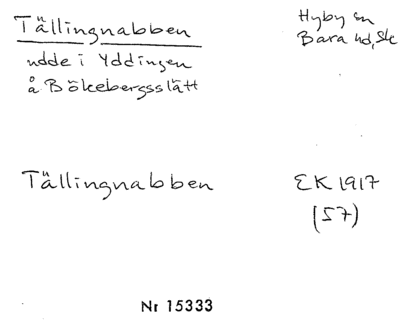 Tällingnabben
Hyby sn
Bara hd, Sk
udde i Yddingen
å Bökebergsslätt
Tällingnabben
EK 1917
(57)
Nr 15333